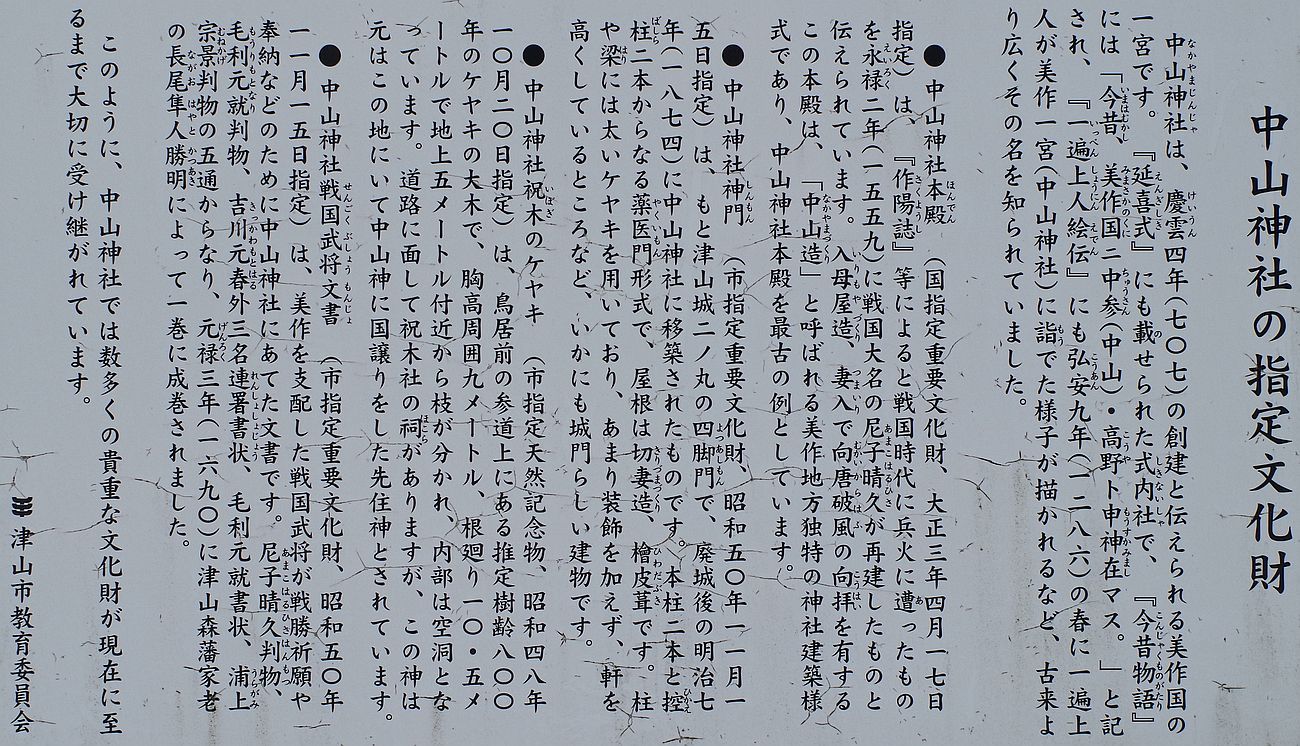 中山神社の指定文化財
中山神社は、慶雲四年(七〇七)の創建と伝えられる美作国の
一宮です。『延喜式』にも載せられた式内社で、『今昔物語』
には「今昔、美作国ニ中参(中山)・高野ト申神在マス。」と記
され、『一遍上人絵伝』にも弘安九年(一二八六)の春に一遍上
人が美作一宮(中山神社)に詣でた様子が描かれるなど、古来よ
り広くその名を知られていました。
●中山神社本殿(国指定重要文化財、大正三年四月一七日
指定)は、『作陽誌』等によると戦国時代に兵火に遭ったもの
を永禄二年(一五五九)に戦国大名の尼子晴久が再建したものと
伝えられています。入母屋造、妻入で向唐破風の向拝を有する
この本殿は、「中山造」と呼ばれる美作地方独特の神社建築様
式であり、中山神社本殿を最古の例としています。
●中山神社神門(市指定重要文化財、昭和五〇年一一月一
五日指定)は、もと津山城二ノ丸の四脚門で、廃城後の明治七
年(一八七四)に中山神社に移築されたものです。本柱二本と控
柱二本からなる薬医門形式で、屋根は切妻造、檜皮葺です。柱
や梁には太いケヤキを用いており、あまり装飾を加えず、軒を
高くしているところなど、いかにも城門らしい建物です。
●中山神社祝木のケヤキ(市指定天然記念物、昭和四八年
一〇月二〇日指定)は、鳥居前の参道上にある推定樹齢八〇〇
年のケヤキの大木で、胸高周囲九メートル、根廻り一〇・五メ
ートルで地上五メートル付近から枝が分かれ、内部は空洞とな
っています。道路に面して祝木社の祠がありますが、この神は
元はこの地にいて中山神に国譲りをした先住神とされています。
●中山神社戦国武将文書(市指定重要文化財、昭和五〇年
一一月一五日指定)は、美作を支配した戦国武将が戦勝祈願や
奉納などのために中山神社にあてた文書です。尼子晴久判物、
毛利元就判物、吉川元春外三名連署書状、毛利元就書状、浦上
宗景判物の五通からなり、元禄三年(一六九〇)に津山森藩家老
の長尾隼人勝明によって一巻に成巻されました。
このように、中山神社では数多くの貴重な文化財が現在に至
るまで大切に受け継がれています。
津山市教育委員会